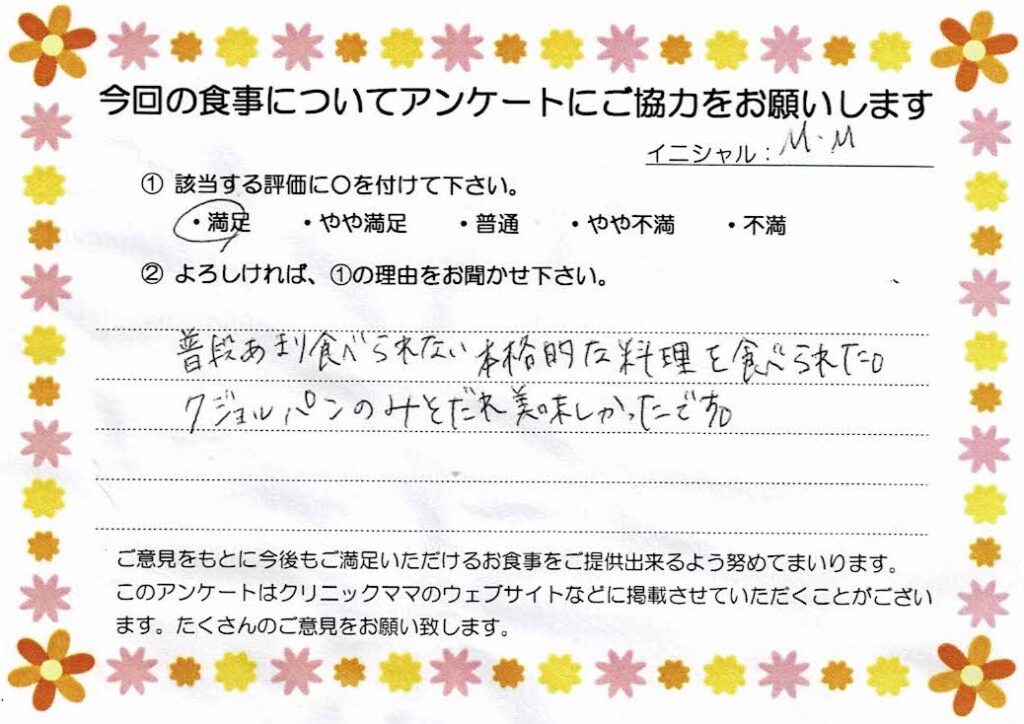 今回の食事についてアンケートにご協力をお願いします
イニシャル：M.M
① 該当する評価に〇を付けて下さい。
・満足　・やや満足　・普通　・やや不満　・不満
② よろしければ、①の理由をお聞かせ下さい。
普段あまり食べられない本格的な料理を食べられた。
クジョルパンのみそだれ美味しかったです。
ご意見をもとに今後もご満足いただけるお食事をご提供出来るよう努めてまいります。
このアンケートはクリニックママのウェブサイトなどに掲載させていただくことがござい
ます。たくさんのご意見をお願い致します。